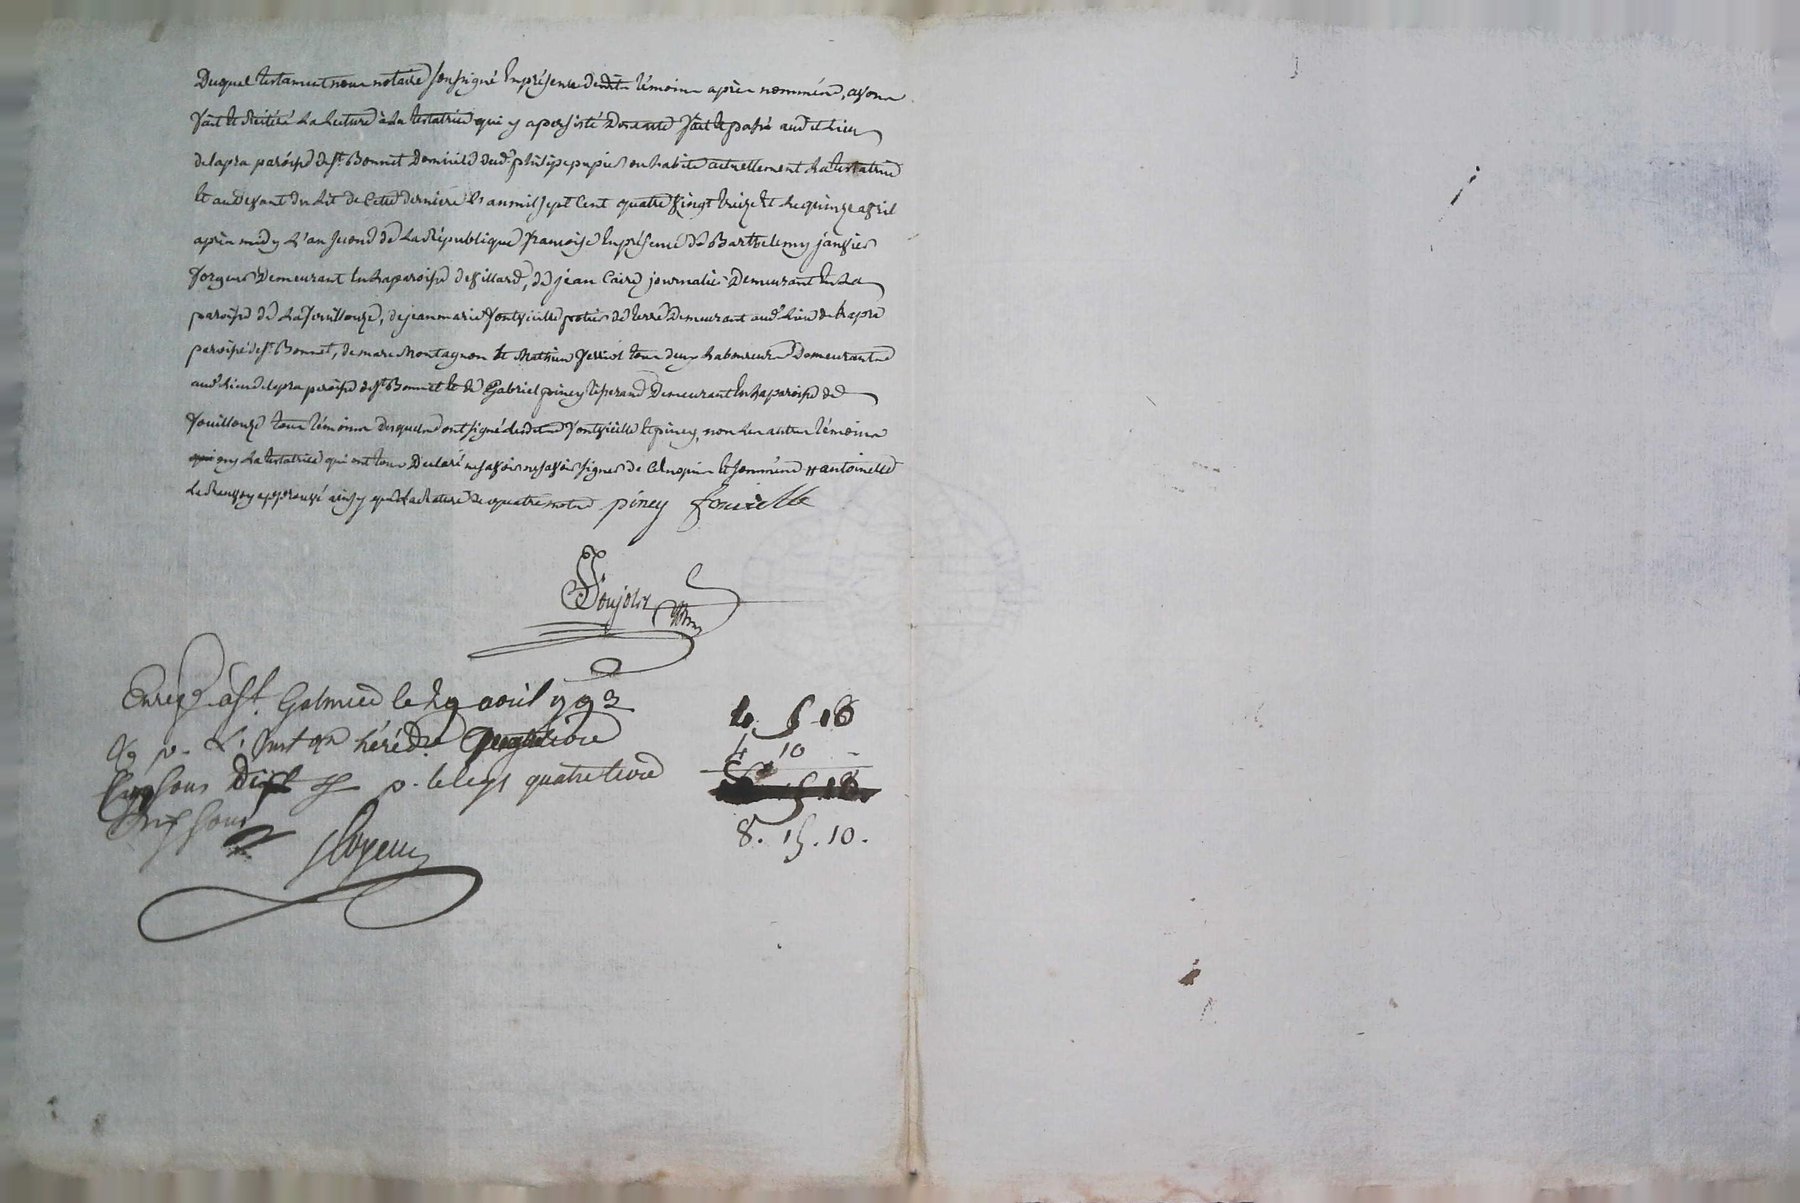 Duquel testament nous notaire soussigné en présence desdits témoins après nommés, avons
fait et réitéré la lecture à la testatrice qui y a persisté Dont acte fait et passé aud. et lieu
de lapra paroisse de St. Bonnet Domicile dud. philipe pupier ou habite actuellement la testatrice
et au devant du lit de cette dernière l'an mil sept cent quatre vingt treize et le quinze avril
après midy l'an second de la République françoise en présence de Barthelemy janvier
forgeur Demeurant en la paroisse de villard, de jean Caire journalier Demeurant en la
paroisse de la fouillouze, de jean marie fontvieille potier de terre Demeurant aud. lieu de lapra
paroisse de St. Bonnet, de marc Montagnon et Mathieu ferriol tous deux laboureurs Demeurants
aud. lieu de lapra paroisse de St. Bonnet et de Gabriel piney Demeurant en la paroisse de
fouillouze tous témoins desquels ont signé lesdits fontvieille et piney, non les autres témoins
ny la testatrice qui ont tous Déclaré ne savoir signer de ce enquis et sommés # antoinette
le renvoy approuvé ainsy que la rature de quatre mots piney fonvielle
Enreg. à St. Galmier le 29 avril 1793
hérédre livre
sous Dix p. le legs quatre livre
Dix sous
4. 5 18
4 10 -
8. 15. 10.